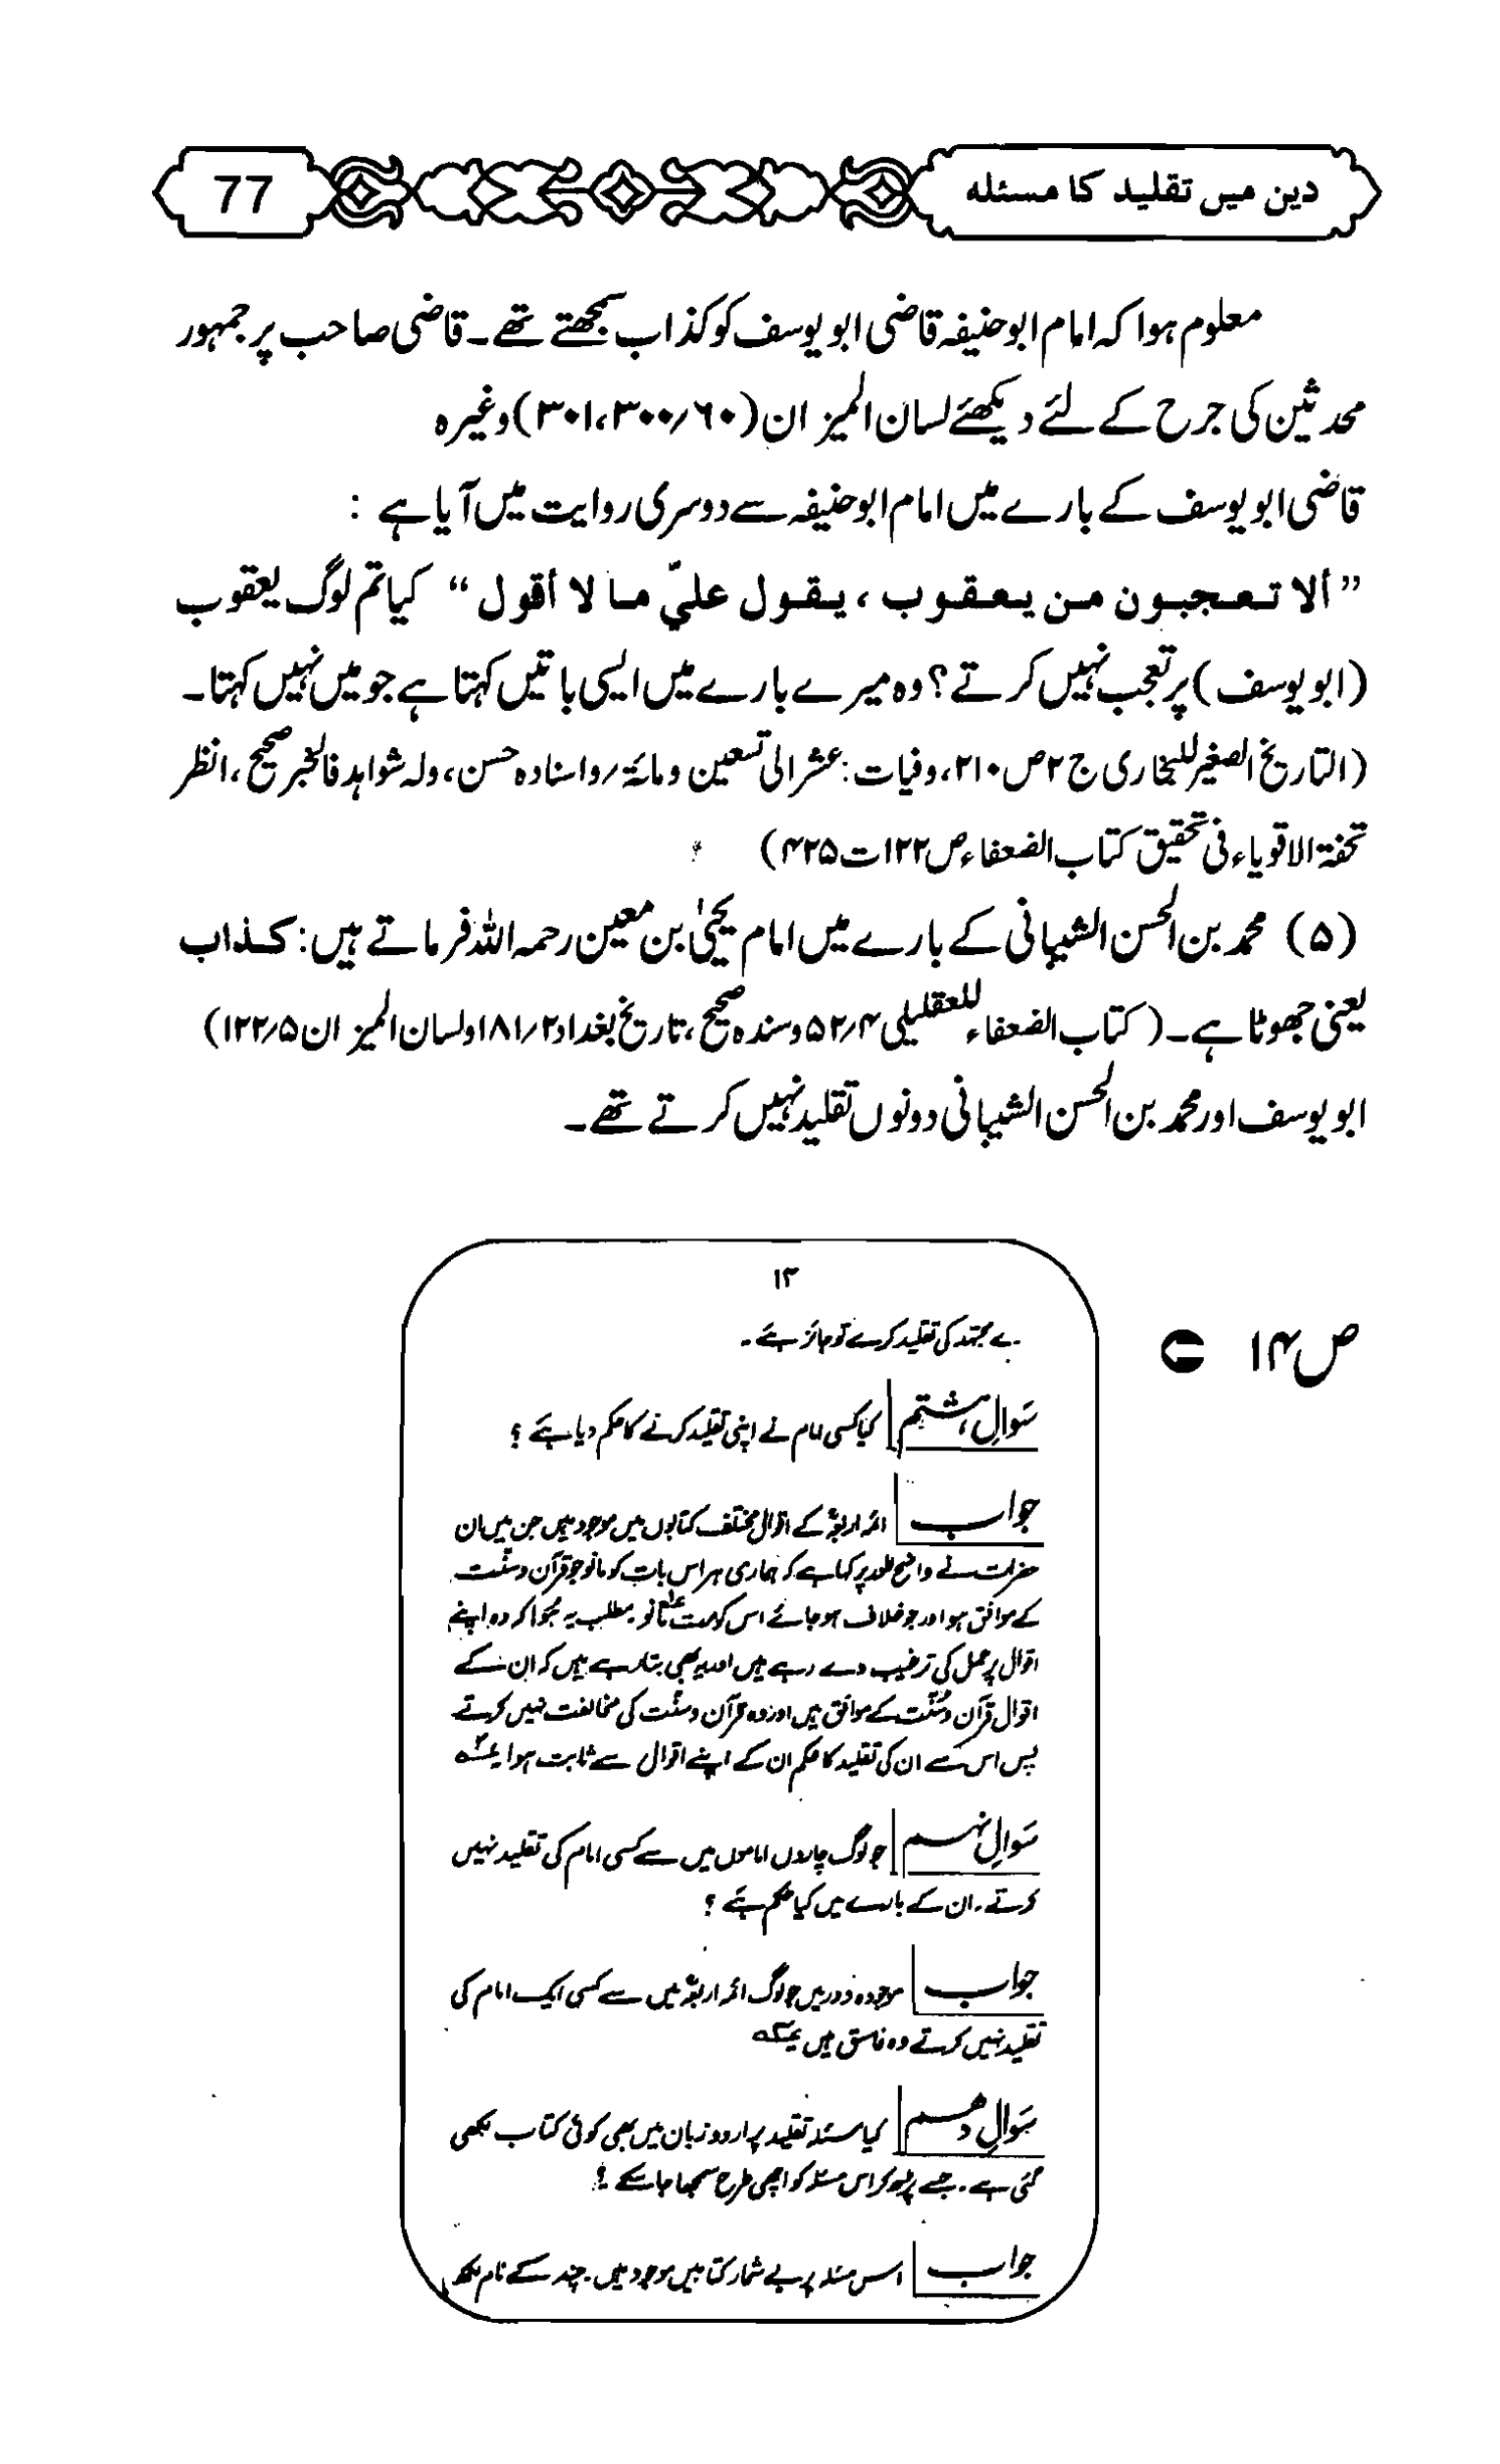 دین میں تقلید کا مسئلہ
77
معلوم ہوا کہ امام ابوحنیفہ قاضی ابو یوسف کو کذاب سمجھتے تھے۔ قاضی صاحب پر جمہور
محدثین کی جرح کے لئے دیکھئے لسان المیزان (۶۰/ ۳۰۰، ۳۰۱) وغیرہ
قاضی ابو یوسف کے بارے میں امام ابوحنیفہ سے دوسری روایت میں آیا ہے :
”ألا تعجبون من يعقوب ، يقول عليّ ما لا أقول“ کیا تم لوگ یعقوب
(ابو یوسف) پر تعجب نہیں کرتے؟ وہ میرے بارے میں ایسی باتیں کہتا ہے جو میں نہیں کہتا۔
(التاریخ الصغیر للبخاری ج ۲ ص ۲۱۰، وفیات: عشر الی تسعین ومائۃ / واسنادہ حسن، ولہ شواہد فالخبر صحیح، انظر
تحفۃ الاقویاء فی تحقیق کتاب الضعفاء ص ۱۲۲ ت ۴۲۵)
(۵) محمد بن الحسن الشیبانی کے بارے میں امام یحییٰ بن معین رحمہ اللہ فرماتے ہیں: کذاب
یعنی جھوٹا ہے۔ (کتاب الضعفاء للعقیلی ۵۲/۴ وسندہ صحیح، تاریخ بغداد ۱۸۱/۲ ولسان المیزان ۱۲۲/۵)
ابو یوسف اور محمد بن الحسن الشیبانی دونوں تقلید نہیں کرتے تھے۔
ص ۱۴
۱۴
مجتہد کی تقلید کرے تو جائز ہے۔
سوالِ ہشتم کیا کسی امام نے اپنی تقلید کرنے کا حکم دیا ہے ؟
جواب ائمہ اربعہؒ کے اقوال مختلف کتابوں میں موجود ہیں جن میں ان
حضرات نے واضح طور پر کہا ہے کہ ہماری ہر اس بات کو مانو جو قرآن وسنّت
کے موافق ہو اور جو خلاف ہو جائے اس کو مت مانو۔ مطلب یہ ہوا کہ وہ اپنے
اقوال پر عمل کی ترغیب دے رہے ہیں اور یہ بھی بتا رہے ہیں کہ ان کے
اقوال قرآن وسُنّت کے موافق ہیں اور وہ قرآن وسنّت کی مخالفت نہیں کرتے
پس اس سے ان کی تقلید کا حکم ان کے اپنے اقوال سے ثابت ہوا
سوالِ نہم جو لوگ چاروں اماموں میں سے کسی امام کی تقلید نہیں
کرتے۔ ان کے بارے میں کیا حکم ہے ؟
جواب موجودہ دور میں جو لوگ ائمہ اربعہؒ میں سے کسی ایک امام کی
تقلید نہیں کرتے وہ فاسق ہیں
سوالِ دہم کیا مسئلہ تقلید پر اردو زبان میں بھی کوئی کتاب لکھی
گئی ہے۔ جسے پڑھ کر اس مسئلہ کو اچھی طرح سمجھا جا سکے ؟
جواب اس مسئلہ پر بے شمار کتابیں موجود ہیں۔ چند کے نام